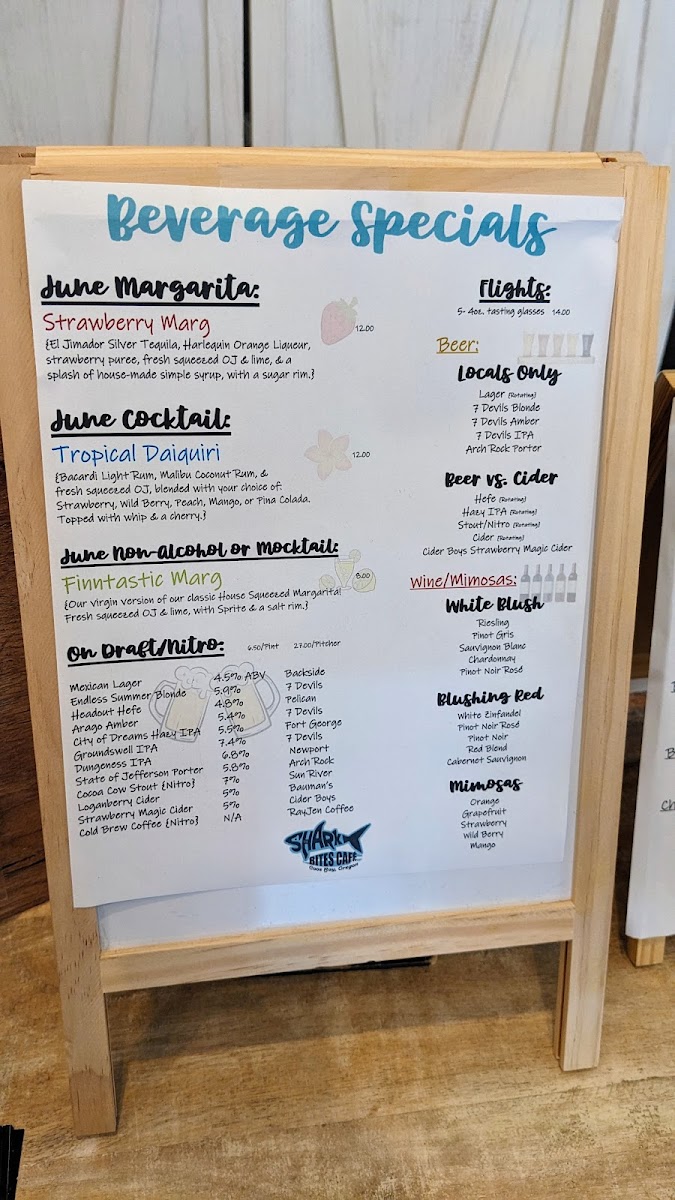 Beverage Specials
June Margarita:
Strawberry Marg
12.00
{El Jimador Silver Tequila, Harlequin Orange Liqueur,
strawberry puree, fresh squeezed OJ & lime, & a
splash of house-made simple syrup, with a sugar rim.}
June Cocktail:
Tropical Daiquiri
12.00
{Bacardi Light Rum, Malibu Coconut Rum, &
fresh squeezed OJ, blended with your choice of:
Strawberry, Wild Berry, Peach, Mango, or Pina Colada.
Topped with whip & a cherry.}
June Non-Alcohol or Mocktail:
Finntastic Marg
8.00
{Our virgin version of our classic House Squeezed Margarita!
Fresh squeezed OJ & lime, with Sprite & a salt rim.}
On Draft/Nitro: 6.50/Pint 27.00/Pitcher
Mexican Lager 4.5% ABV Backside
Endless Summer Blonde 5.9% 7 Devils
Headout Hefe 4.8% Pelican
Arago Amber 5.4% 7 Devils
City of Dreams Hazy IPA 5.5% Fort George
Groundswell IPA 7.4% 7 Devils
Dungeness IPA 6.8% Newport
State of Jefferson Porter 5.8% Arch Rock
Cocoa Cow Stout {Nitro} 7% Sun River
Loganberry Cider 5% Bauman's
Strawberry Magic Cider 5% Cider Boys
Cold Brew Coffee {Nitro} N/A RayJen Coffee
SHARK
BITES CAFE
Coos Bay, Oregon
Flights:
5- 4oz. tasting glasses 14.00
Beer:
Locals Only
Lager {Rotating}
7 Devils Blonde
7 Devils Amber
7 Devils IPA
Arch Rock Porter
Beer vs. Cider
Hefe {Rotating}
Hazy IPA {Rotating}
Stout/Nitro {Rotating}
Cider {Rotating}
Cider Boys Strawberry Magic Cider
Wine/Mimosas:
White Blush
Riesling
Pinot Gris
Sauvignon Blanc
Chardonnay
Pinot Noir Rosé
Blushing Red
White Zinfandel
Pinot Noir Rosé
Pinot Noir
Red Blend
Cabernet Sauvignon
Mimosas
Orange
Grapefruit
Strawberry
Wild Berry
Mango